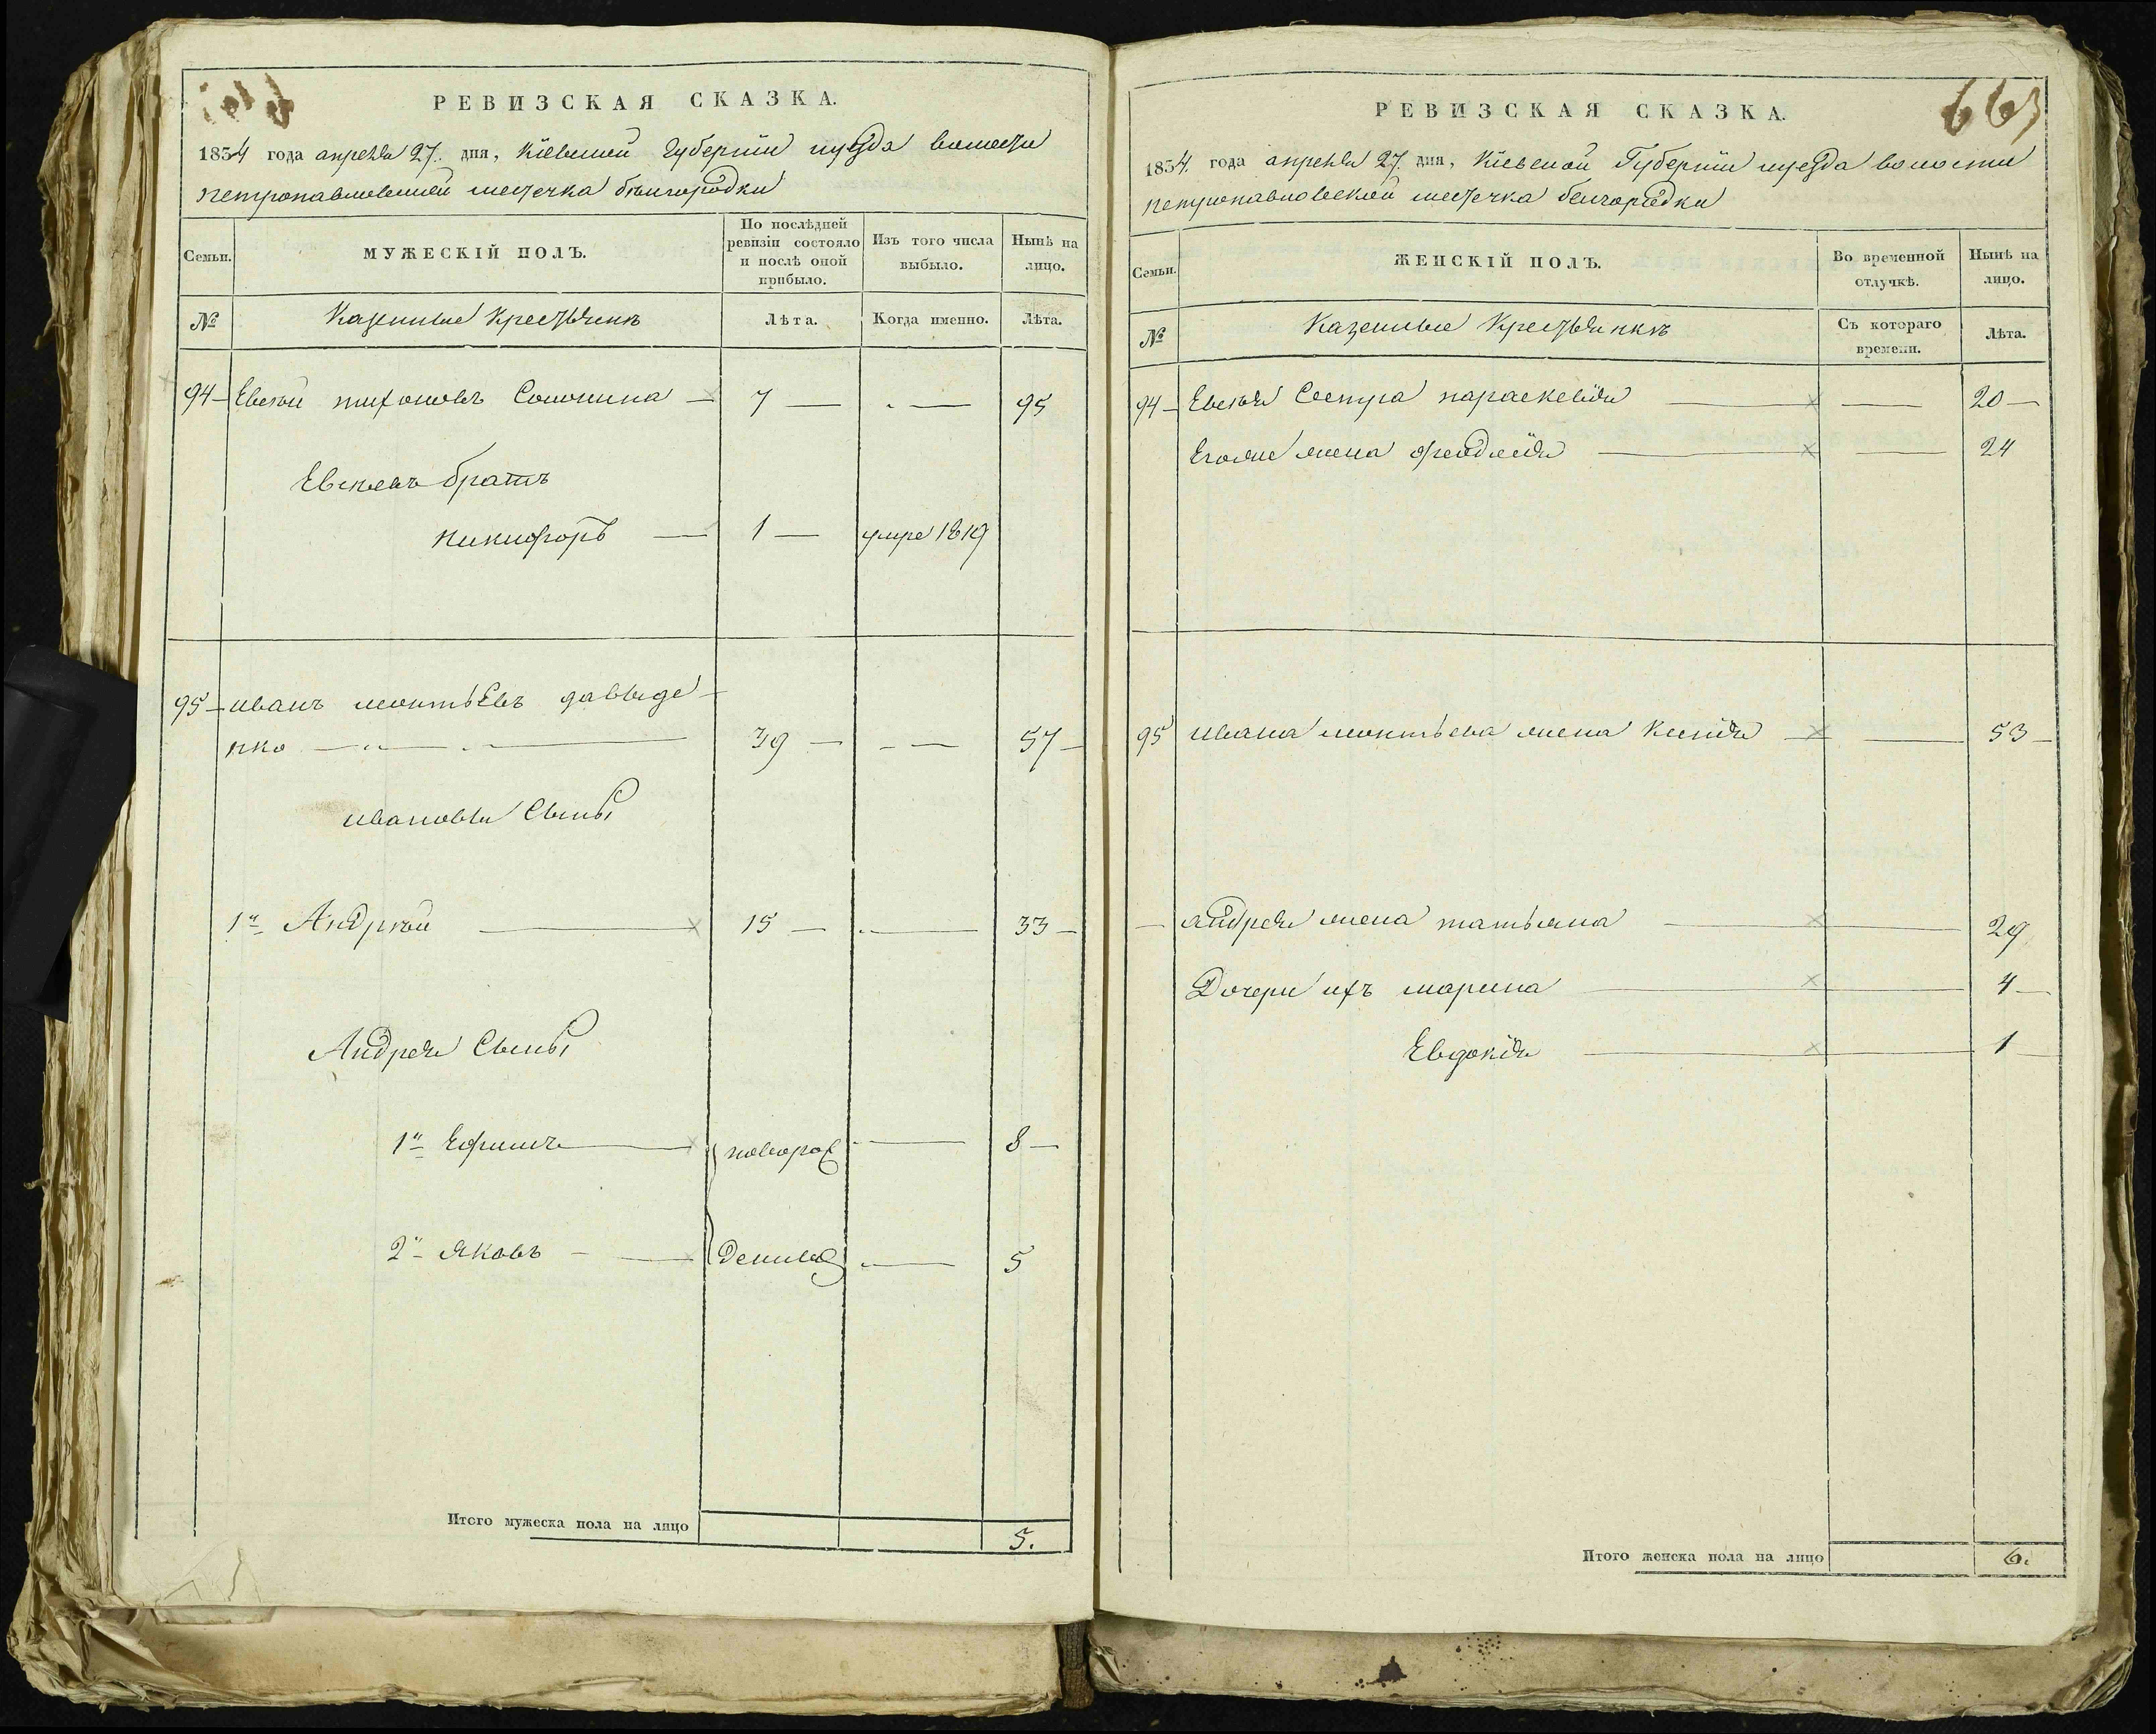 РЕВИЗСКАЯ СКАЗКА.
1834 года апреля 27. дня, Кіевской Губерніи и уезда волости
петропавловской местечка белгородки
Семьи.
МУЖЕСКІЙ ПОЛЪ.
По послѣдней ревизіи состояло и послѣ оной прибыло.
Изъ того числа выбыло.
Нынѣ на лицо.
№
Казенные Крестьяне
Лѣта.
Когда именно.
Лѣта.
94 Евсей тихоновъ Солонина 7 25
Евсеевъ братъ
никифоръ 1 умре 1819
95 иванъ леонтьевъ давыде
нко 39 57
ивановы Сыны
1й Андрей 15 33
Андрея Сыны
1й Ефимъ новорож 8
2й Яковъ денные 5
Итого мужеска пола на лицо 5.
663
РЕВИЗСКАЯ СКАЗКА.
1834 года апреля 27 дня, Кіевской Губерніи и уезда волости
петропавловской местечка белгородки
Семьи.
ЖЕНСКІЙ ПОЛЪ.
Во временной отлучкѣ.
Нынѣ на лицо.
№
Казенные Крестьянки
Съ котораго времени.
Лѣта.
94 Евсея Сестра параскевія 20
Егоже жена 24
95 ивана леонтьева жена Ксенія 53
андрея жена татьяна 29
Дочери ихъ марина 4
Евдокія 1
Итого женска пола на лицо 6.